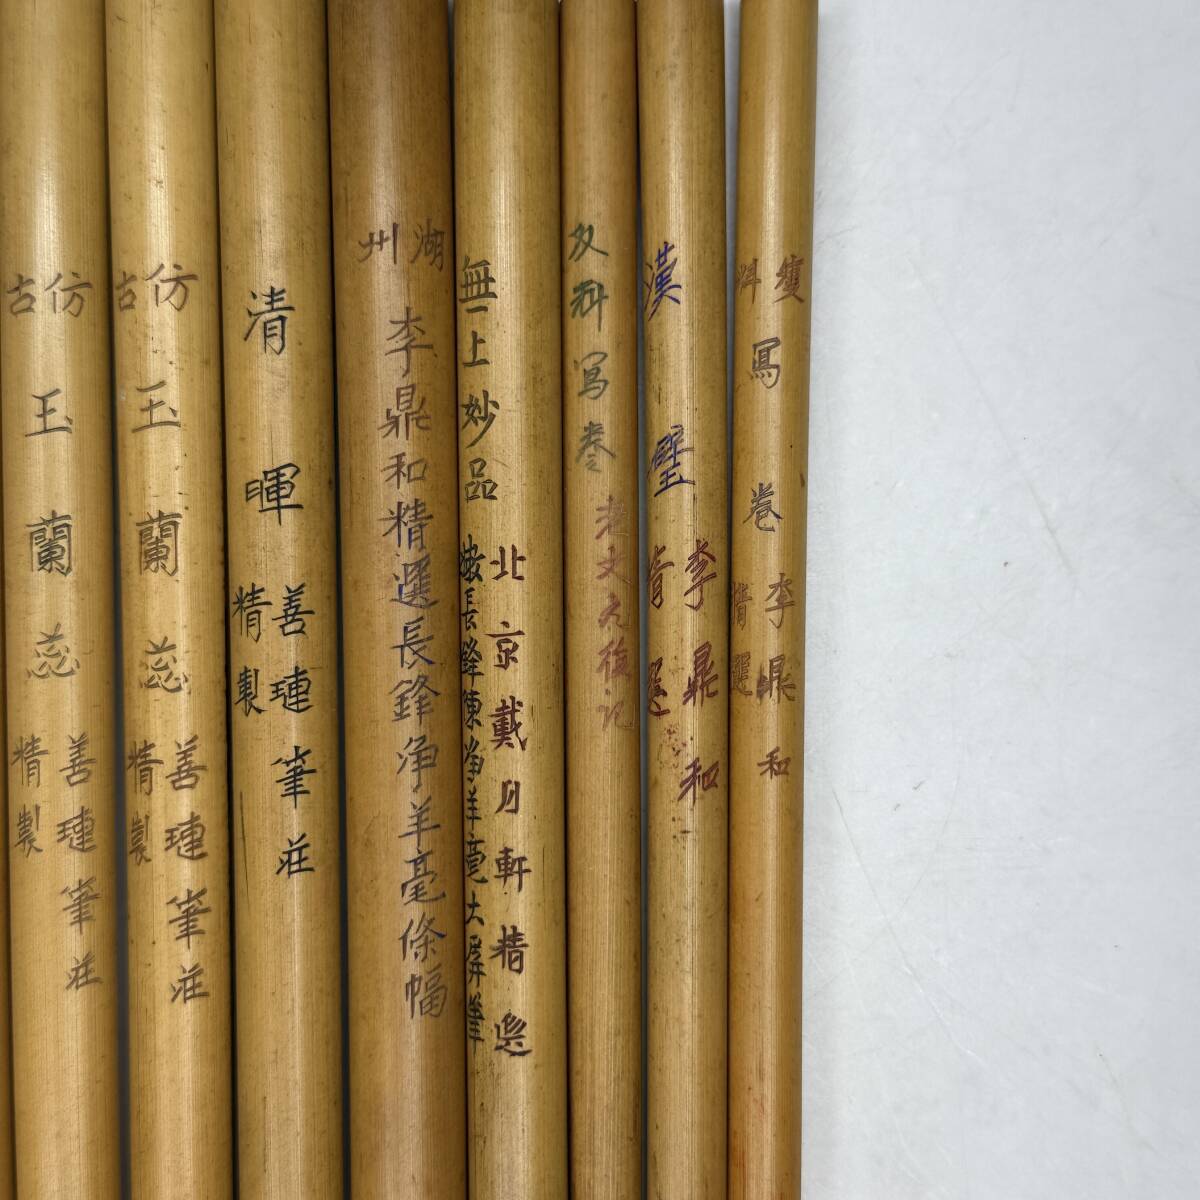 仿古
玉蘭蕊
善璉筆莊
精製
仿古
玉蘭蕊
善璉筆莊
精製
清暉
善璉筆莊
精製
湖州
李鼎和精選長鋒净羊毫條幅
無上妙品
北京戴月軒精选
長鋒陳净羊毫大屏筆
双料寫卷
老文元後记
漢璧
李鼎和
精選
雙料
寫卷
李鼎和
精選